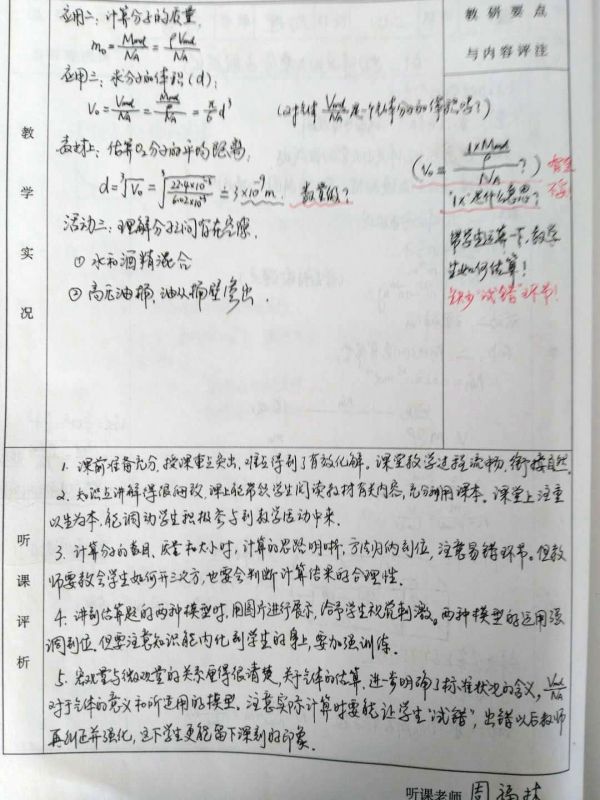 教研要点
与内容评注
教学实况
应用二：计算分子的质量，
m₀ = Mmol/NA = ρVmol/NA
应用三：求分子的体积（d）：
V₀ = Vmol/NA = (Mmol/ρ)/NA = π/6 d³
（对气体 Vmol/NA 是一个气体分子的体积吗？）
估算 分子的平均距离；
d = ³√V₀ = ³√(22.4×10⁻³/6.02×10²³) = 3×10⁻⁹m． 数量级？
（V₀ = (1×Mmol/ρ)/NA ？）
"1×"是什么意思？
活动二：理解分子间存在空隙．
① 水和酒精混合
② 高压油桶，油从桶壁渗出．
带学生运算一下，教学
生如何估算！
缺少"试错"环节！
听课评析
1. 课前准备充分，授课重点突出，难点得到了有效化解。课堂教学过程流畅，衔接自然。
2. 知识点讲解得很细致，课上能带领学生阅读教材有关内容，充分利用课本。课堂上注重
以生为本，能调动学生积极参与到教学活动中来．
3. 计算分子的数目、质量和大小时，计算的思路明晰，方法归纳到位，注意易错环节。但教
师要教会学生如何开三次方，也要会判断计算结果的合理性．
4. 讲到估算题的两种模型时，用图片进行展示，给予学生视觉刺激。两种模型的运用强
调到位，但要注意知识能内化到学生的身上，要加强训练．
5. 宏观量与微观量的关系理得很清楚，关于气体的估算，进一步明确了标准状况的含义，Vmol/NA
对于气体的意义和所运用的模型．注意实际计算时要能让学生"试错"，出错以后教师
再纠正并强化，这下学生更能留下深刻的印象．
听课老师 周福林